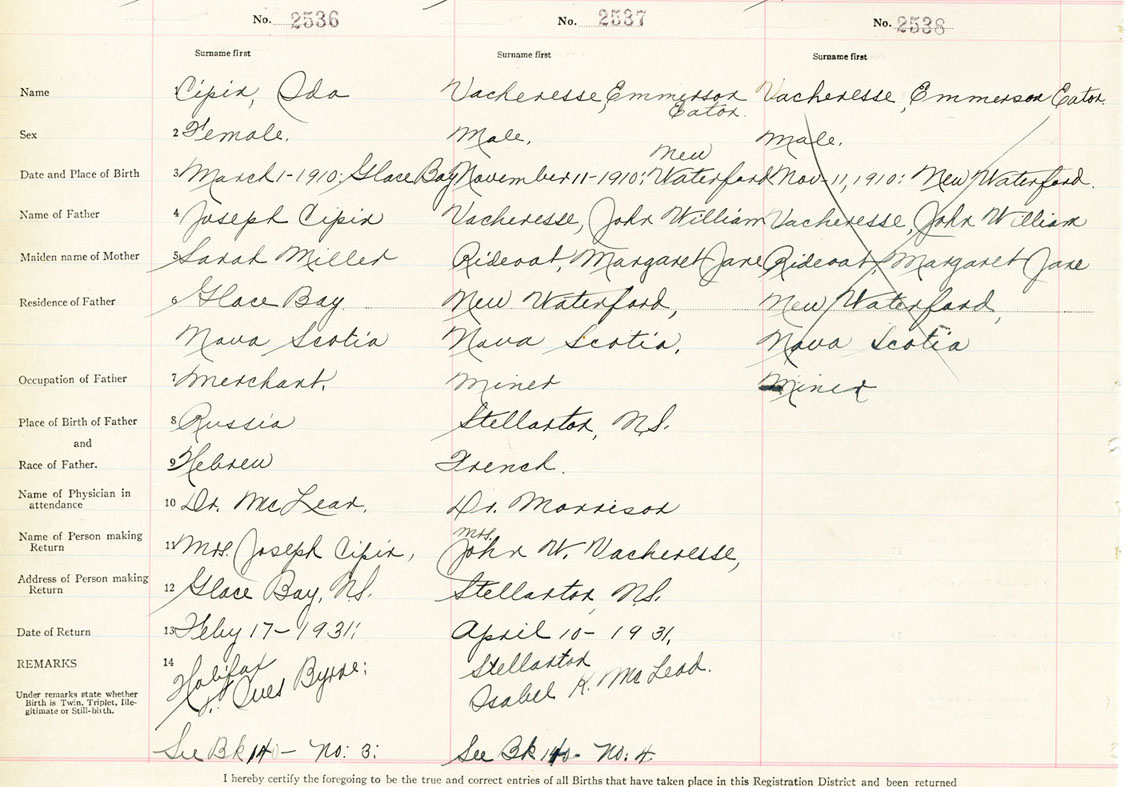 No. 2536 No. 2537 No. 2538
Surname first Surname first Surname first
Name 1 Cipin, Ida Vacheresse, Emmerson Eaton. Vacheresse, Emmerson Eaton.
Sex 2 Female. Male. Male.
Date and Place of Birth 3 March 1-1910: Glace Bay November 11-1910: New Waterford Nov. 11, 1910: New Waterford.
Name of Father 4 Joseph Cipin Vacheresse, John William Vacheresse, John William
Maiden name of Mother 5 Sarah Miller Rideout, Margaret Jane Rideout, Margaret Jane
Residence of Father 6 Glace Bay New Waterford, New Waterford,
Nova Scotia Nova Scotia. Nova Scotia
Occupation of Father 7 Merchant. Miner Miner
Place of Birth of Father 8 Russia Stellarton, N.S.
and
Race of Father. 9 Hebrew French.
Name of Physician in attendance 10 Dr. McLean. Dr. Morrison
Name of Person making Return 11 Mrs. Joseph Cipin, Mrs. John W. Vacheresse,
Address of Person making Return 12 Glace Bay, N.S. Stellarton, N.S.
Date of Return 13 Feby 17-1931: April 10-1931.
REMARKS 14 Halifax Stellarton
Byrne: Isabel K. McLeod.
Under remarks state whether
Birth is Twin, Triplet, Ille-
gitimate or Still-birth.
See Bk 140- No: 3: See Bk 140- No: 4.
I hereby certify the foregoing to be the true and correct entries of all Births that have taken place in this Registration District and been returned